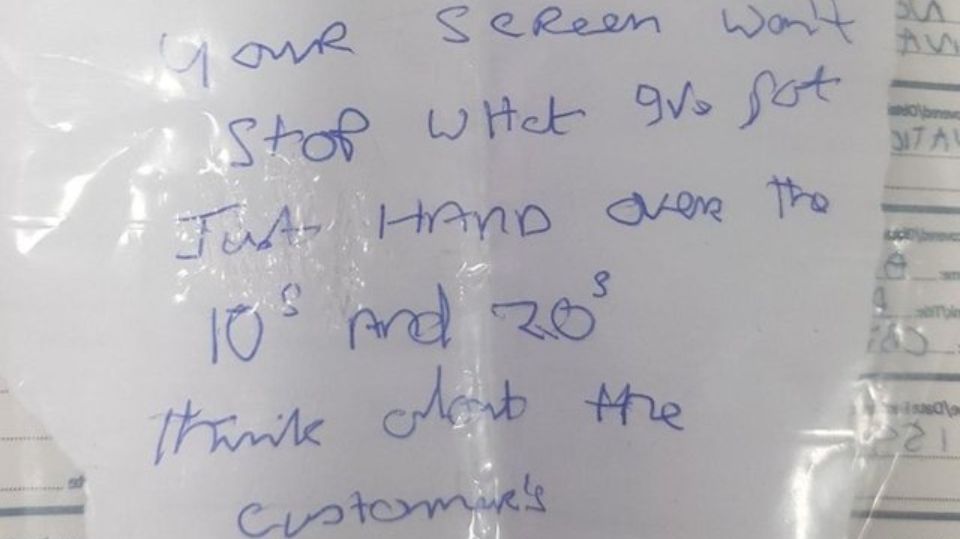 your Screen Won't
Stop what I've got
Just HAND over the
10s And 20s
think about the
customer's